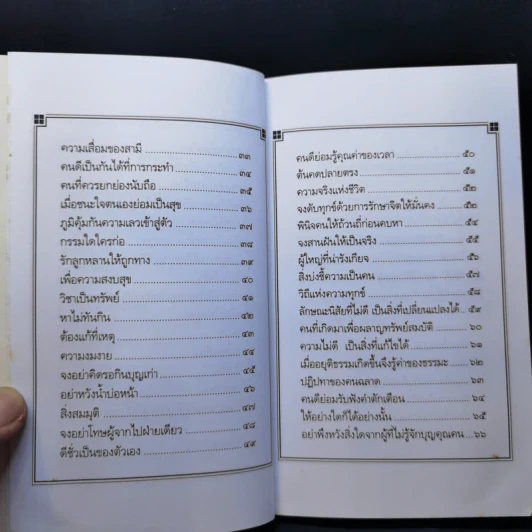 ความเสื่อมของสามี ๓๓
คนดีเป็นกันได้ที่การกระทำ ๓๔
คนที่ควรยกย่องนับถือ ๓๕
เมื่อชนะใจตนเองย่อมเป็นสุข ๓๖
ภูมิคุ้มกันความเลวเข้าสู่ตัว ๓๗
กรรมใดใครก่อ ๓๘
รักลูกหลานให้ถูกทาง ๓๙
เพื่อความสงบสุข ๔๐
วิชาเป็นทรัพย์ ๔๑
หาไม่ทันกิน ๔๒
ต้องแก้ที่เหตุ ๔๓
ความงมงาย ๔๔
จงอย่าคิดรอกินบุญเก่า ๔๕
อย่าหวังน้ำบ่อหน้า ๔๖
สิ่งสมมุติ ๔๗
จงอย่าโทษผู้จากไปฝ่ายเดียว ๔๘
ดีชั่วเป็นของตัวเอง ๔๙
คนดีย่อมรู้คุณค่าของเวลา ๕๐
ต้นคดปลายตรง ๕๑
ความจริงแห่งชีวิต ๕๒
จงดับทุกข์ด้วยการรักษาจิตให้มั่นคง ๕๓
พินิจคนให้ถ้วนถี่ก่อนคบหา ๕๔
จงสานฝันให้เป็นจริง ๕๕
ผู้ใหญ่ที่น่ารังเกียจ ๕๖
สิ่งบ่งชี้ความเป็นคน ๕๗
วิถีแห่งความทุกข์ ๕๘
ลักษณะนิสัยที่ไม่ดี เป็นสิ่งที่เปลี่ยนแปลงได้ ๕๙
คนที่เกิดมาเพื่อผลาญทรัพย์สมบัติ ๖๐
ความไม่ดี เป็นสิ่งที่แก้ไขได้ ๖๑
เมื่ออยุติธรรมเกิดขึ้นจึงรู้ค่าของธรรมะ ๖๒
ปฏิปทาของคนฉลาด ๖๓
คนดีย่อมรับฟังคำตักเตือน ๖๔
ให้อย่างใดก็ได้อย่างนั้น ๖๕
อย่าพึงหวังสิ่งใดจากผู้ที่ไม่รู้จักบุญคุณคน ๖๖